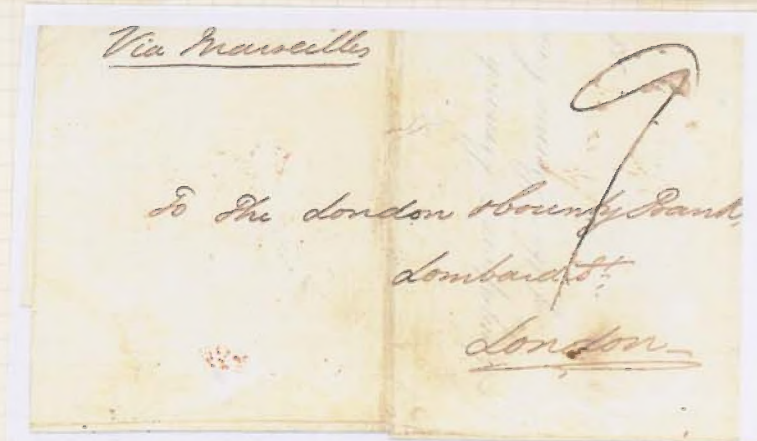 Via Marseilles
To The London & County Bank,
Lombard St.
London